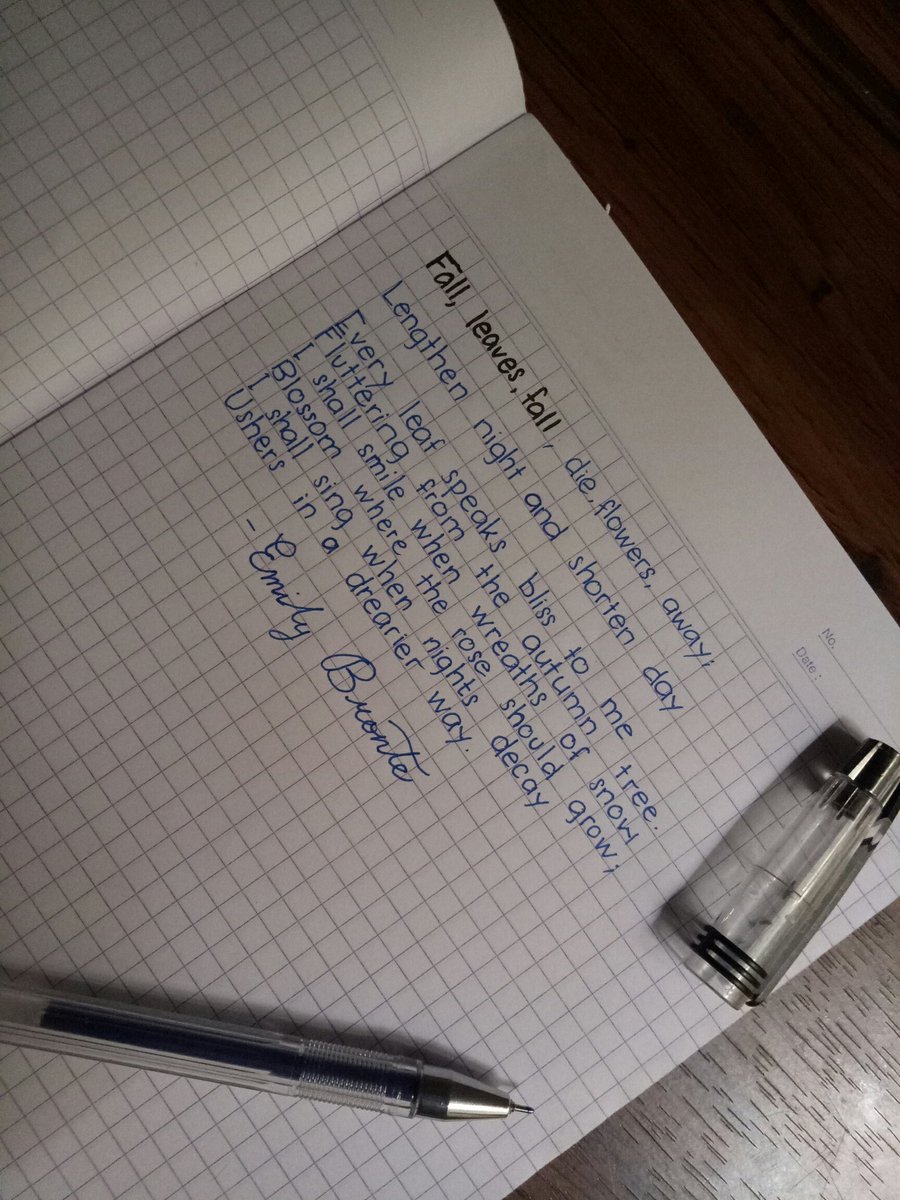 No.
Date:
Fall, leaves, fall, die, flowers, away;
Lengthen night and shorten day
Every leaf speaks bliss to me
Fluttering from the autumn tree.
I shall smile when wreaths of snow
Blossom where the rose should grow;
I shall sing when nights decay
Ushers in a drearier way.
- Emily Bronte